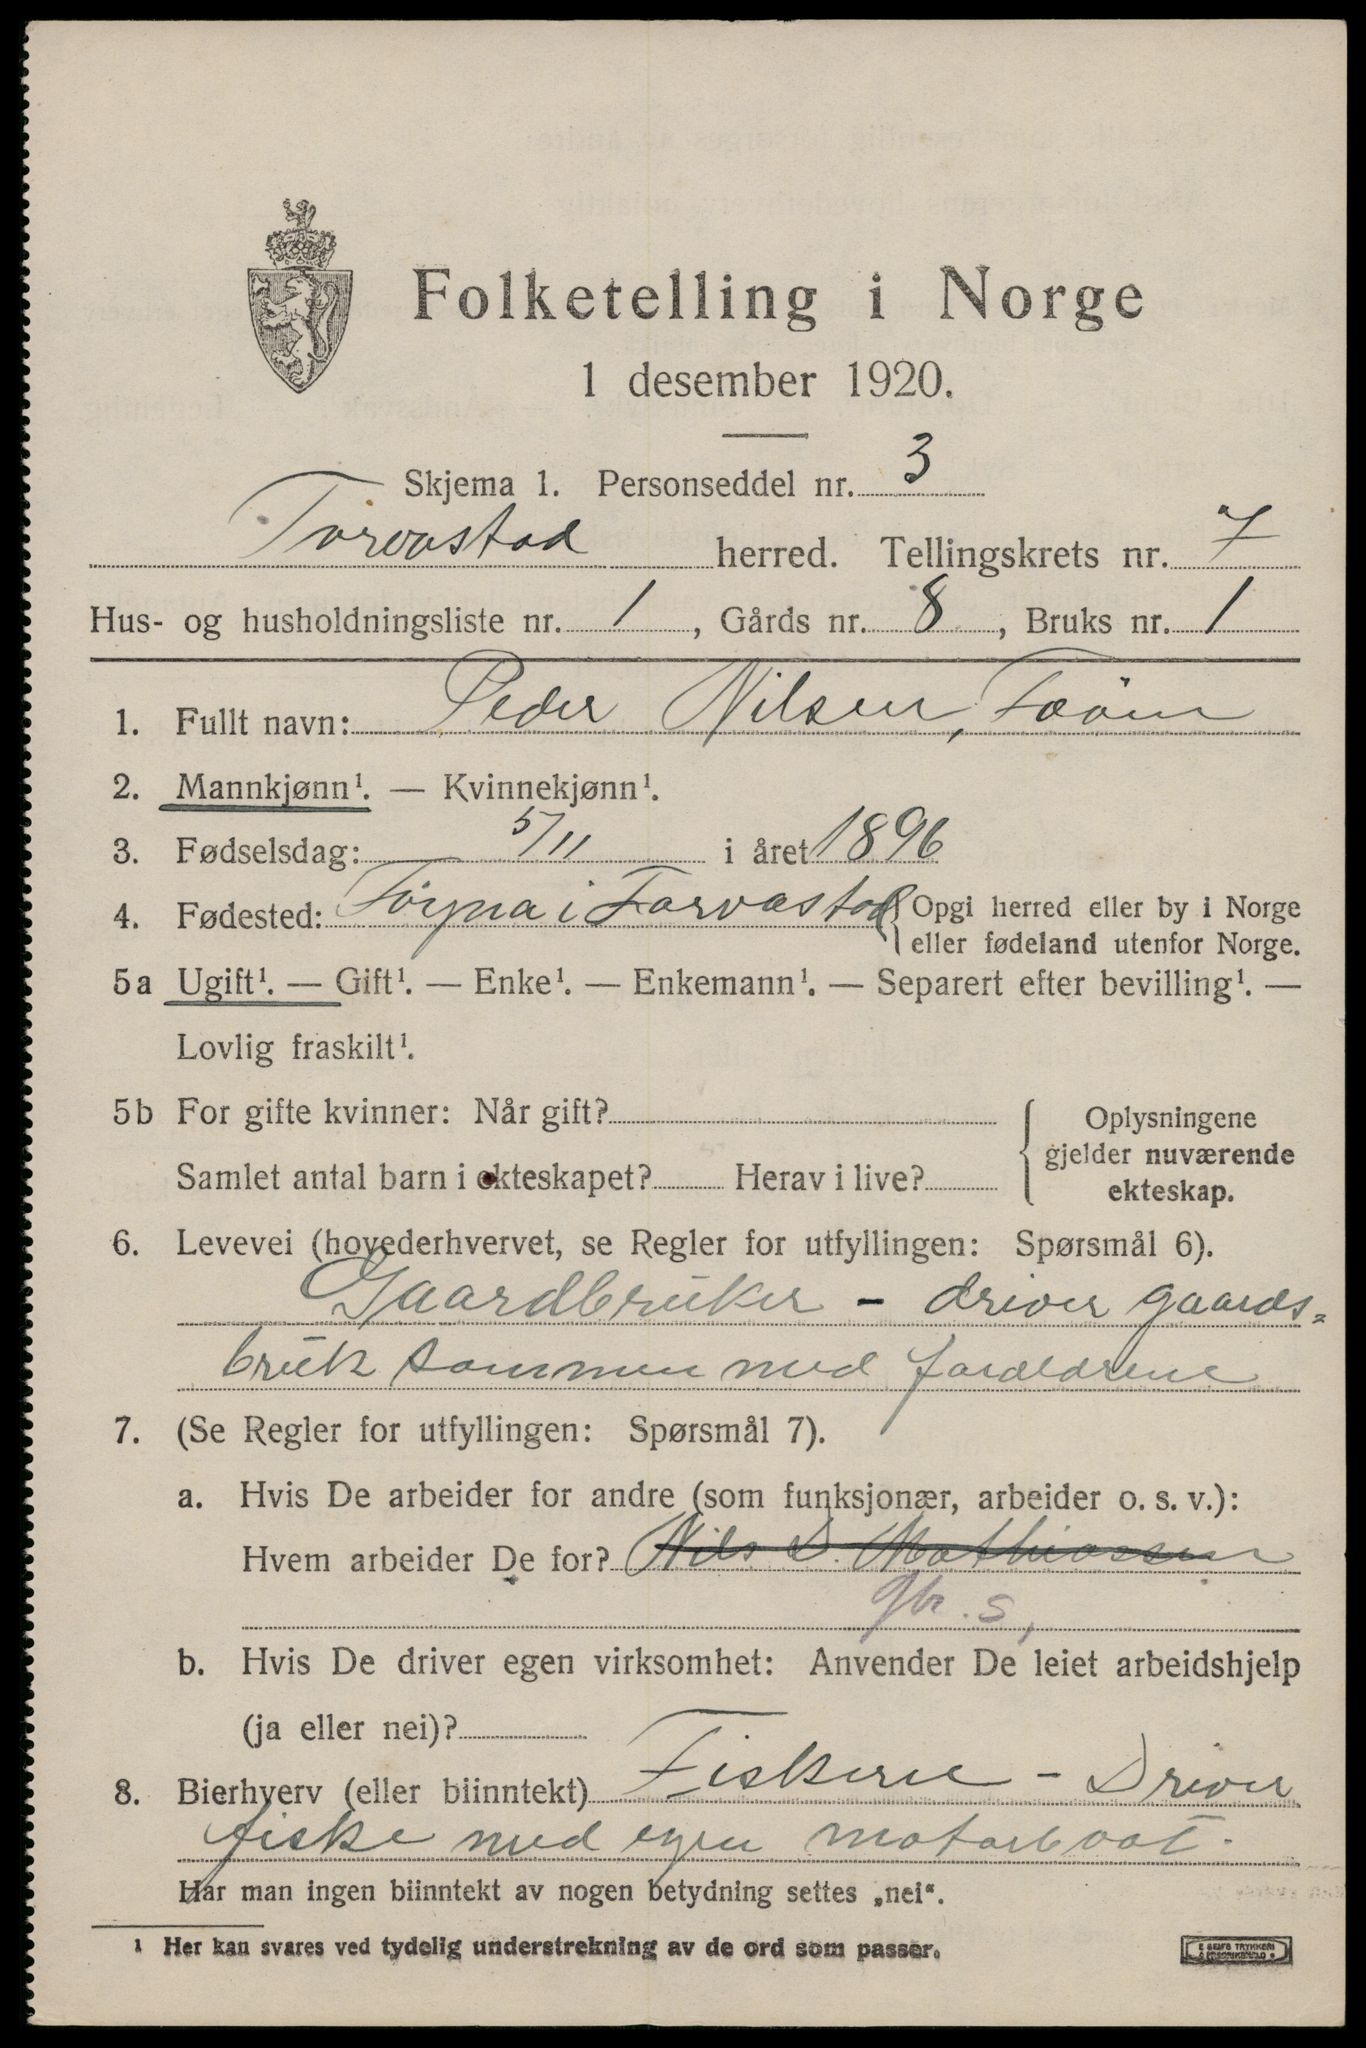 Folketelling i Norge
1 desember 1920.
Skjema 1. Personseddel nr. 3
Torvastad herred. Tellingskrets nr. 7
Hus- og husholdningsliste nr. 1, Gårds nr. 8, Bruks nr. 1
1. Fullt navn: Peder Nilsen,
2. Mannkjønn¹. — Kvinnekjønn¹.
3. Fødselsdag: 5/11 i året 1896
4. Fødested: i Torvastad { Opgi herred eller by i Norge
eller fødeland utenfor Norge.
5a Ugift¹. — Gift¹. — Enke¹. — Enkemann¹. — Separert efter bevilling¹. —
Lovlig fraskilt¹.
5b For gifte kvinner: Når gift?
Samlet antal barn i ekteskapet? Herav i live?
{ Oplysningene
gjelder nuværende
ekteskap.
6. Levevei (hovederhvervet, se Regler for utfyllingen: Spørsmål 6).
Gaardbruker - driver gaards=
bruk sammen med forældrene
7. (Se Regler for utfyllingen: Spørsmål 7).
a. Hvis De arbeider for andre (som funksjonær, arbeider o. s. v.):
Hvem arbeider De for? Nils D. Mathiassen
gbr. s,
b. Hvis De driver egen virksomhet: Anvender De leiet arbeidshjelp
(ja eller nei)?
8. Bierhverv (eller biinntekt) Fiskeri - Driver
fiske med egen motorbaat.
Har man ingen biinntekt av nogen betydning settes „nei".
¹ Her kan svares ved tydelig understrekning av de ord som passer.